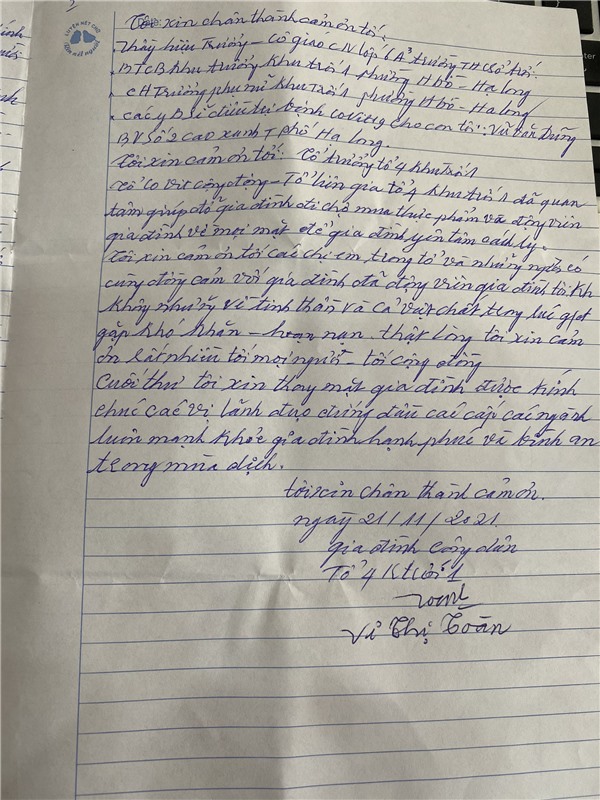 2
LUYỆN NÉT CHỮ
RÈN NẾT NGƯỜI
Tôi xin chân thành cảm ơn tới:
Thầy hiệu Trưởng - Cô giáo CN lớp 6A3 trường TH
BTCB Khu trưởng khu trới 1 phường H bồ - Hạ long
CH Trưởng phụ nữ khu Trới 1 phường H bồ - Hạ long
các y Bác sĩ điều trị bệnh covid 19 cho con tôi: Vũ Văn Dũng
BV Số 2 cao xanh T phố Hạ long.
Tôi xin cảm ơn tới: Tổ trưởng tổ 4 khu trới 1
Tổ Covit cộng đồng - Tổ liên gia tổ 4 khu trới 1 đã quan
tâm giúp đỡ gia đình đi chợ mua thực phẩm và động viên
gia đình về mọi mặt để gia đình yên tâm cách ly.
Tôi xin cảm ơn tới các chị em trong tổ và những người có
cùng đồng cảm với gia đình đã động viên gia đình tôi
không những về tinh thần và cả vật chất trong lúc gđ
gặp khó khăn - hoạn nạn. thật lòng tôi xin cảm
ơn rất nhiều tới mọi người - tới cộng đồng
Cuối thư tôi xin thay mặt gia đình được kính
chúc các vị lãnh đạo đứng đầu các cấp các ngành
luôn mạnh khỏe gia đình hạnh phúc và bình an
trong mùa dịch.
tôi xin chân thành cảm ơn.
ngày 21/11/2021.
gia đình công dân
Tổ 4 K trới 1
Vi Thị Toán